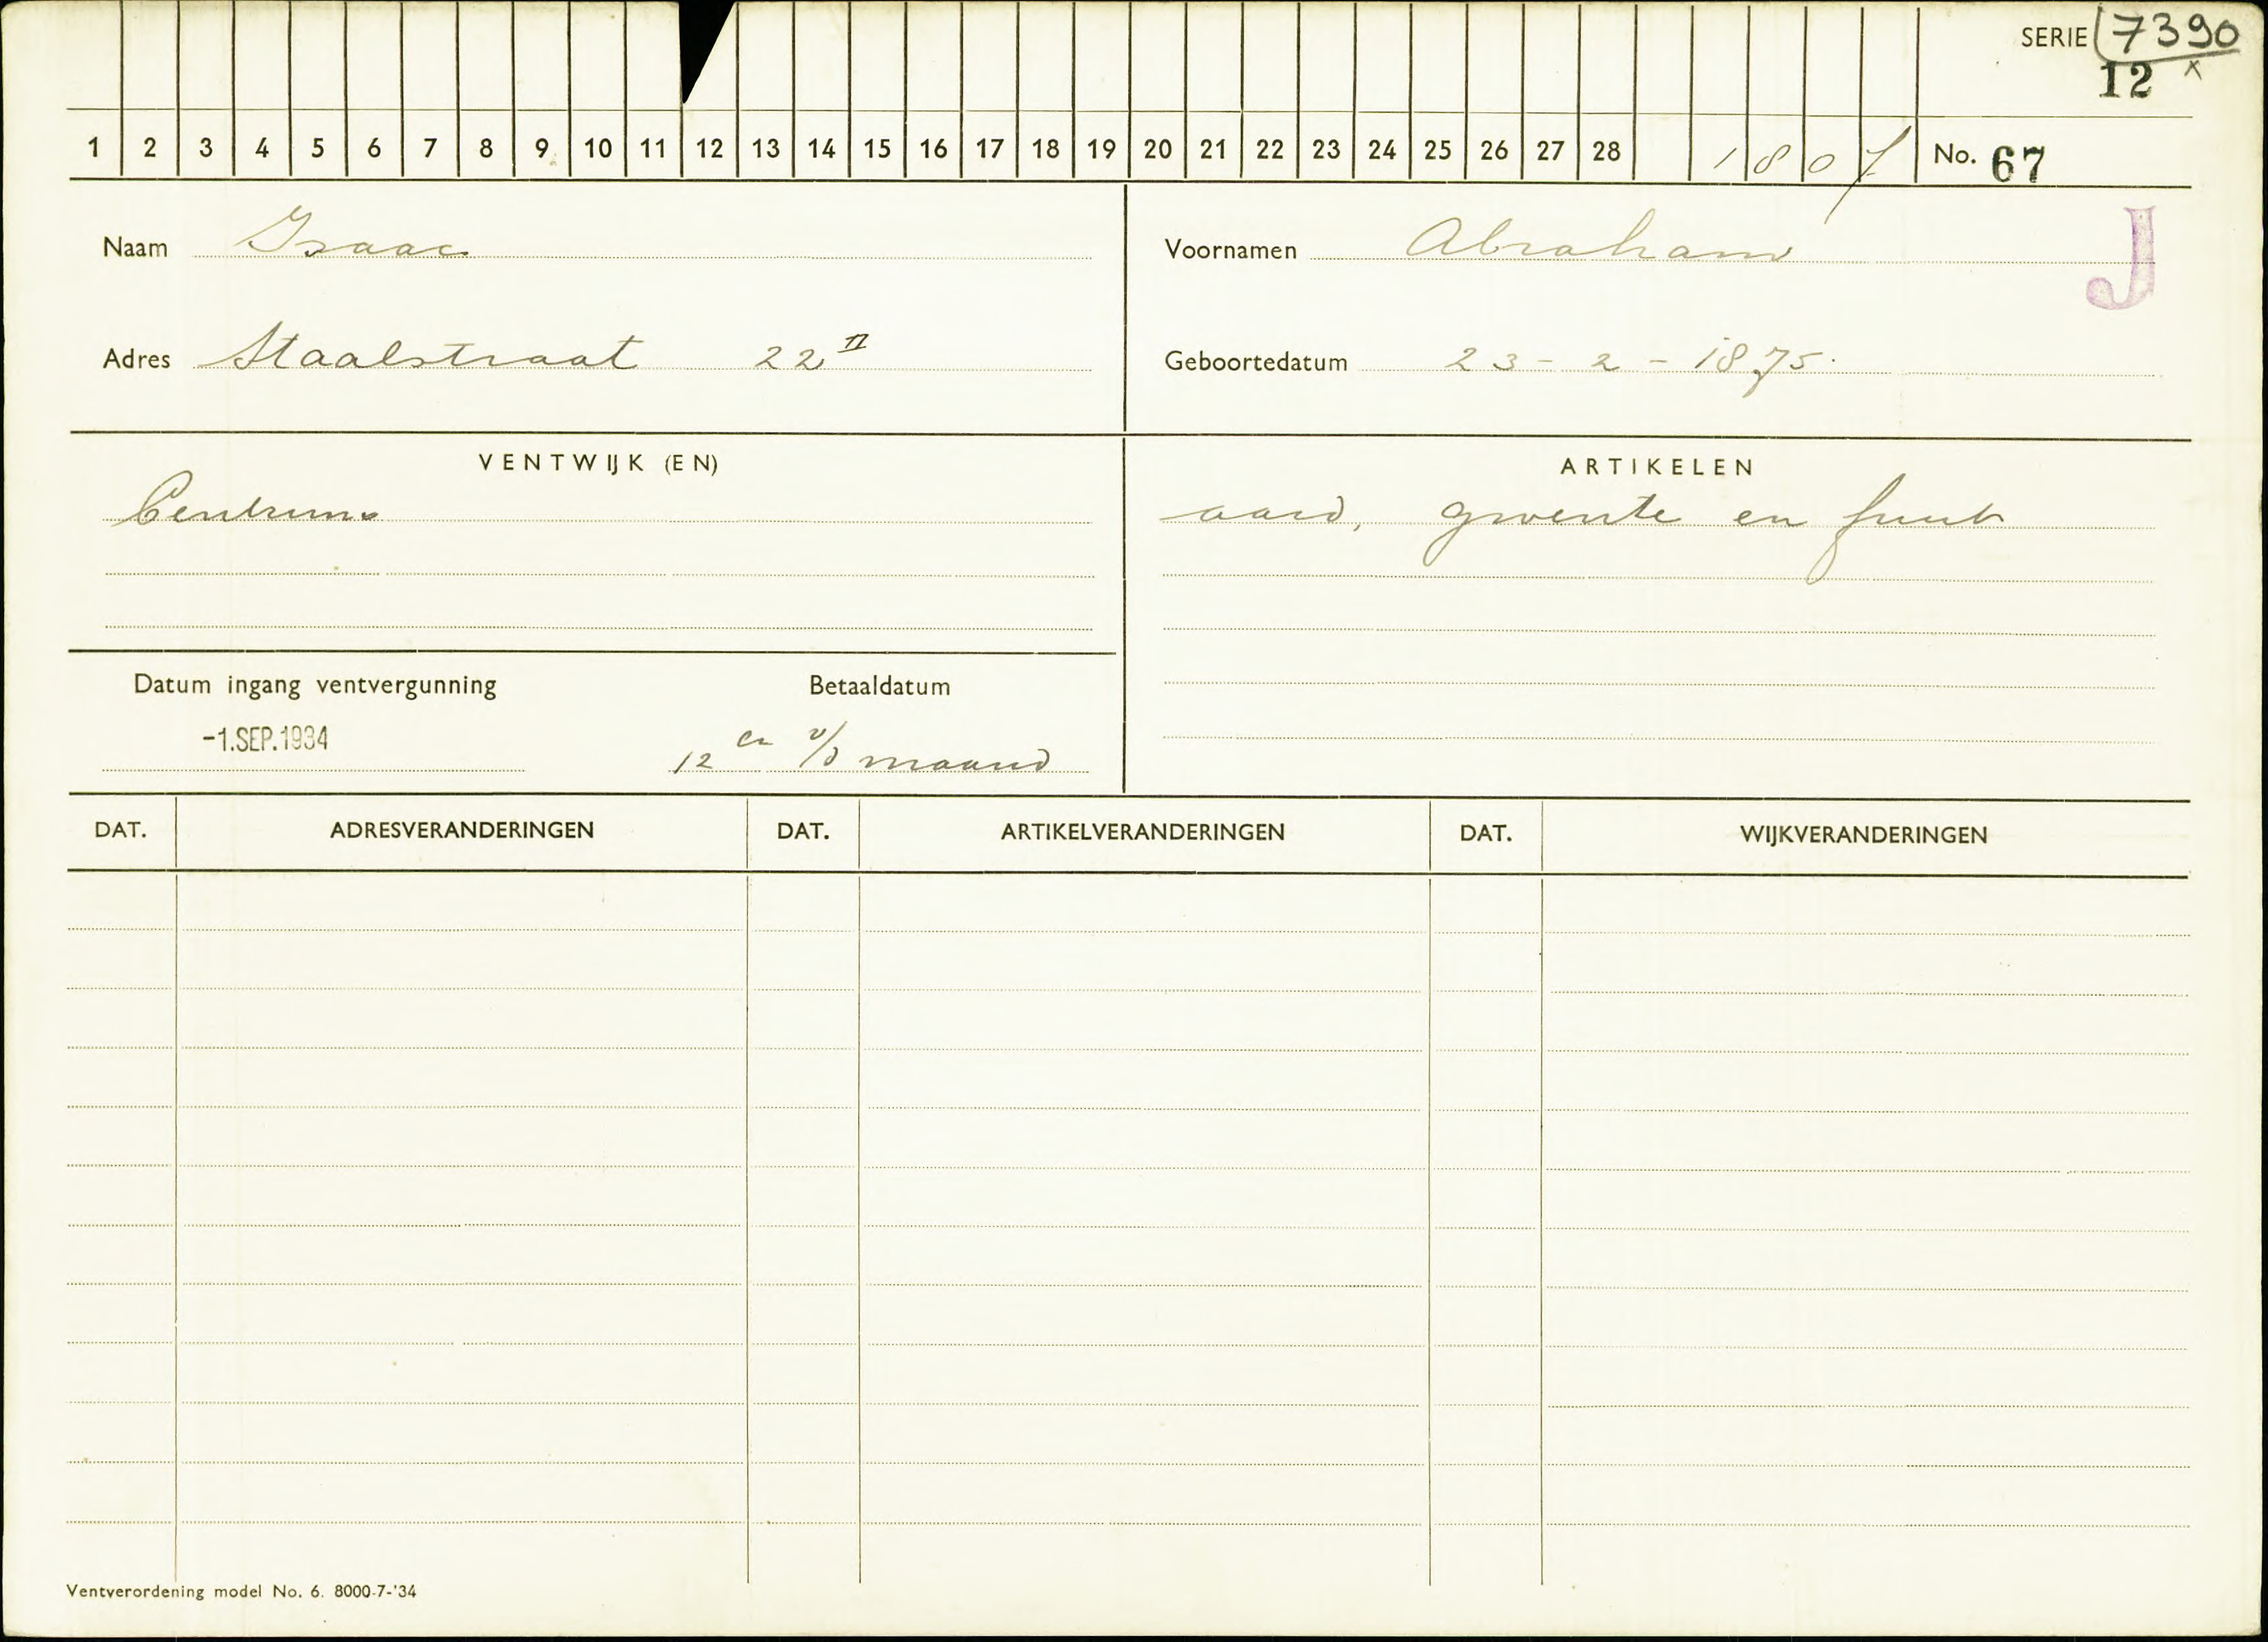 SERIE 7390
12 x
1 2 3 4 5 6 7 8 9 10 11 12 13 14 15 16 17 18 19 20 21 22 23 24 25 26 27 28 1 8 0 7 No. 67
Naam Isaac
Voornamen Abraham
J
Adres Staalstraat 22 II
Geboortedatum 23 - 2 - 1875.
VENTWIJK (EN)
ARTIKELEN
Centrum
aard, groente en fruit
Datum ingang ventvergunning
Betaaldatum
-1.SEP.1934
12 en v/d maand
DAT. ADRESVERANDERINGEN DAT. ARTIKELVERANDERINGEN DAT. WIJKVERANDERINGEN
Ventverordening model No. 6. 8000-7-'34